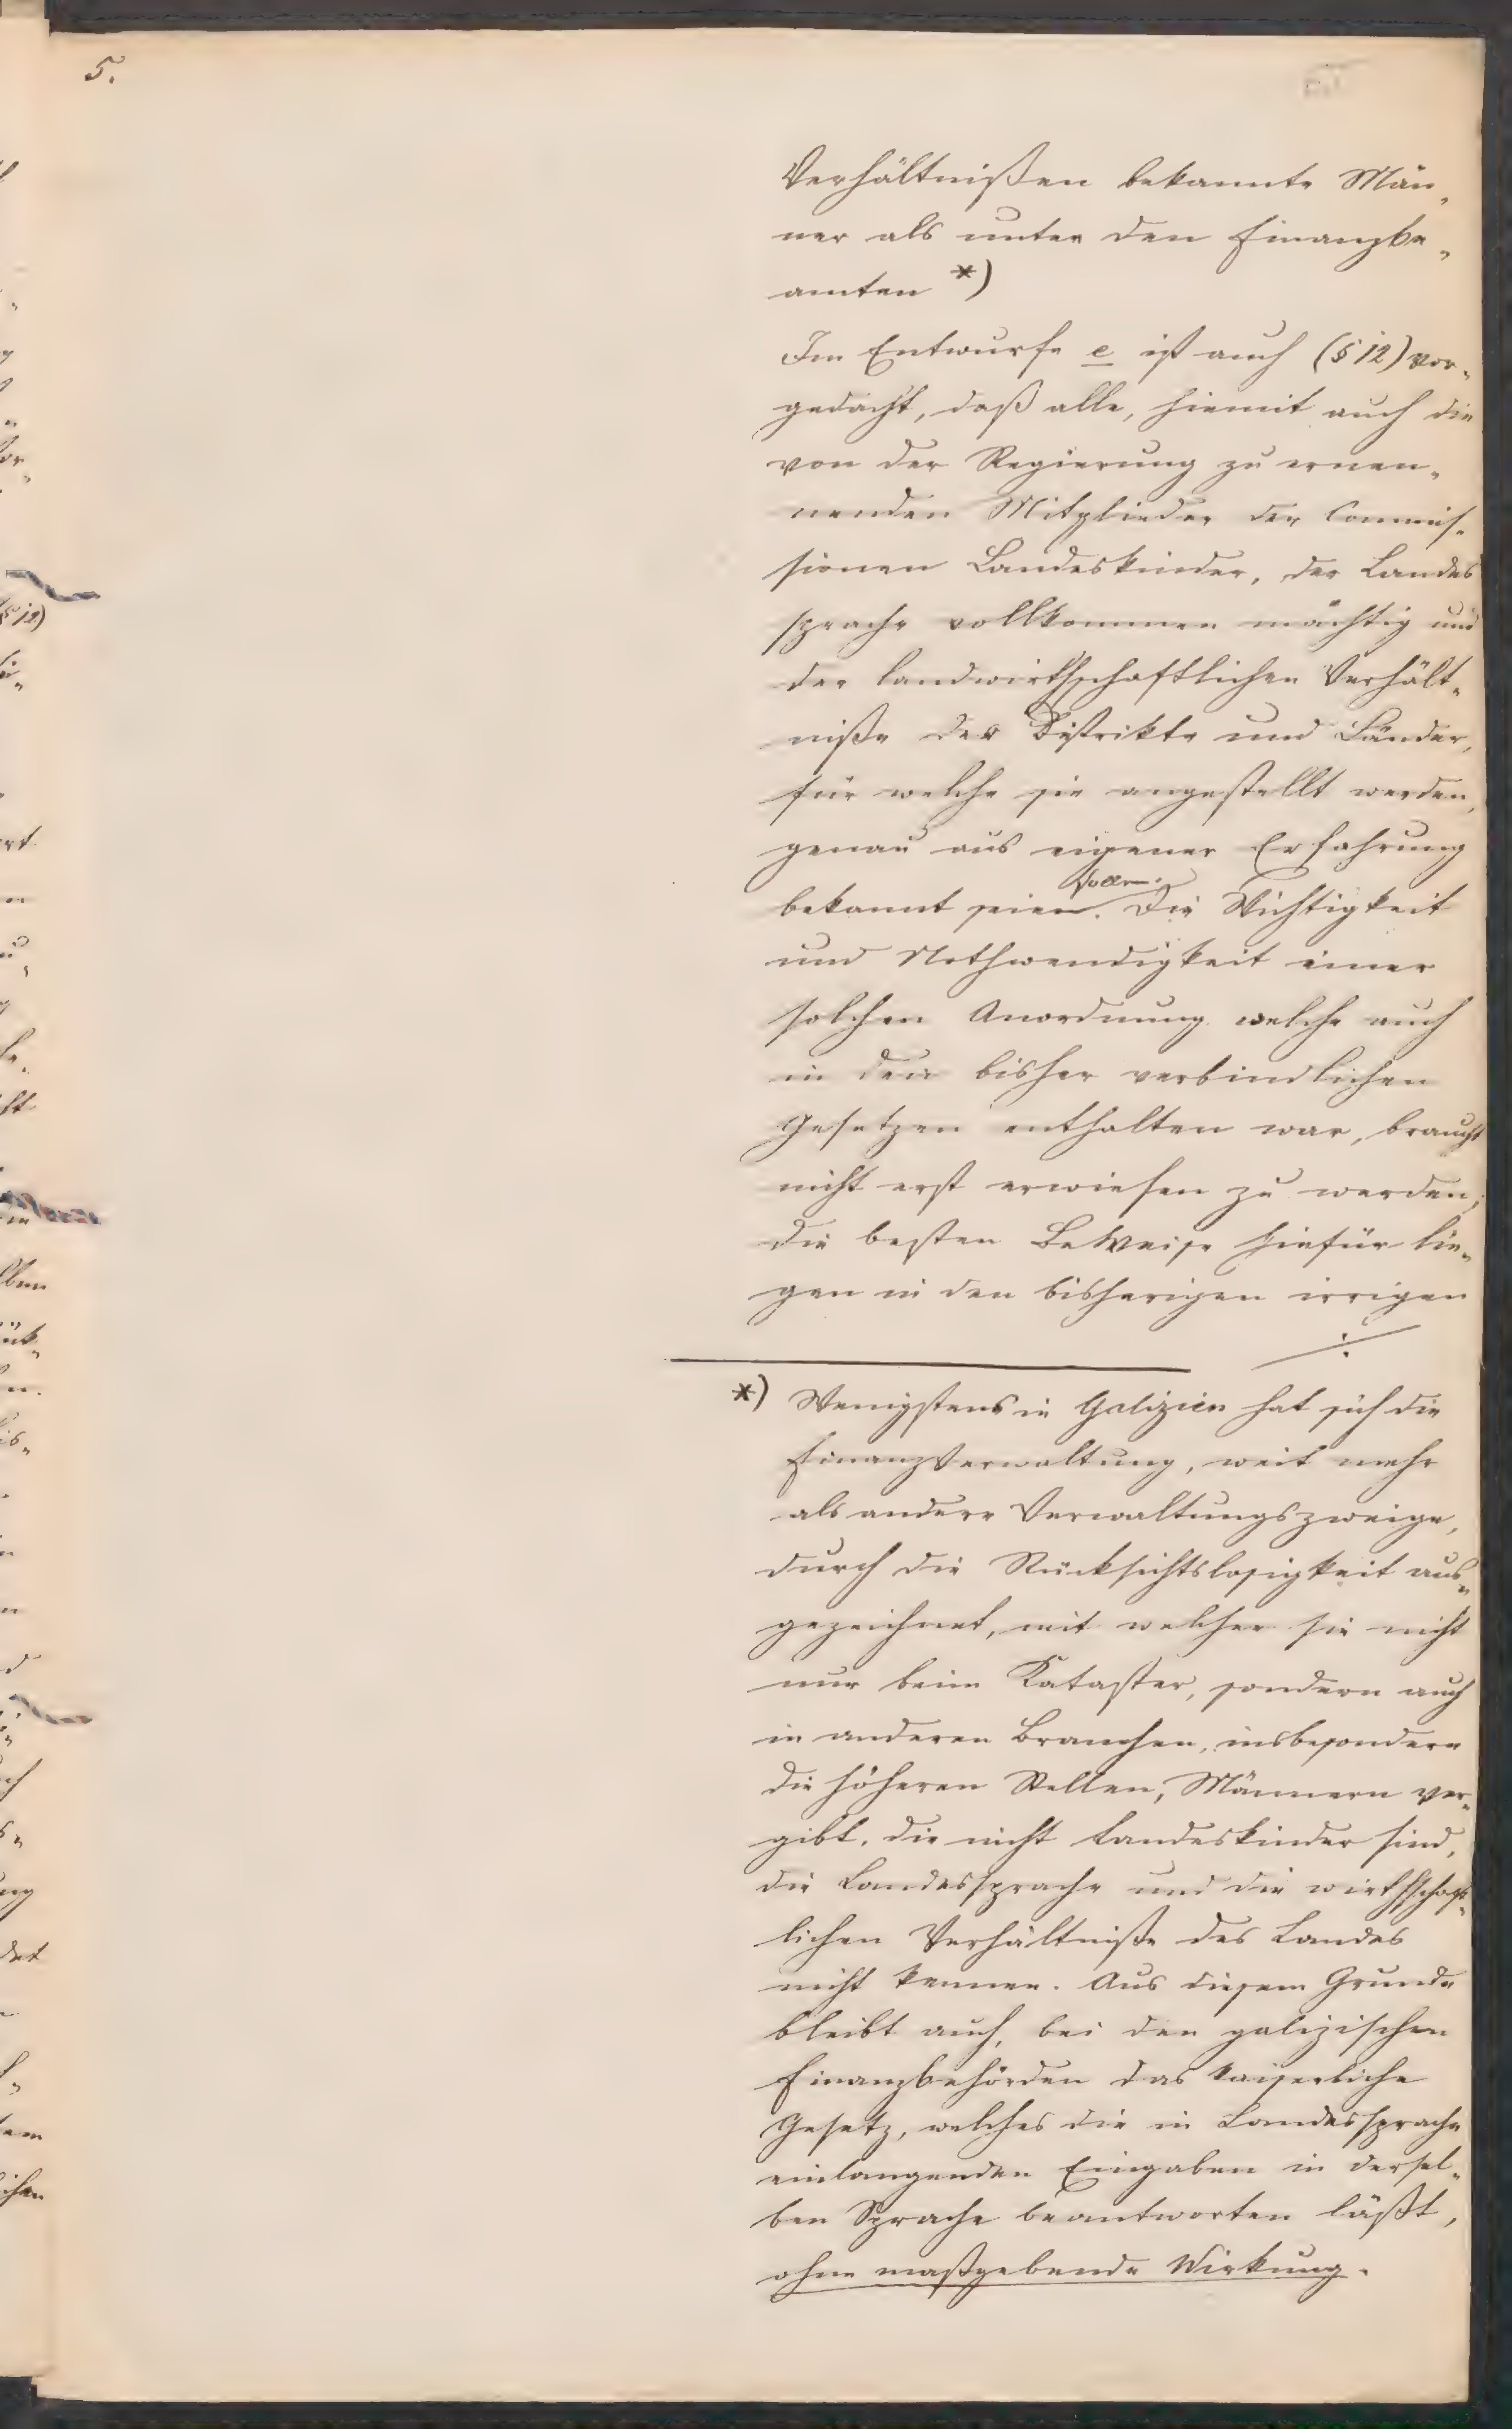 5.
Verhältnißen bekannte Män„
ner als unter den Finanzbe„
amten *)
Im Entwurfe e ist auch (§ 12) vor„
gedacht, daß alle, hiemit auch die
von der Regierung zu ernen„
nenden Mitglieder der Commis„
sionen Landeskinder, der Landes
sprache vollkommen mächtig und
der landwirthschaftlichen Verhält„
niße der Distrikte und Länder,
für welche sie angestellt werden,
genau aus eigener Erfahrung
sollen.
bekannt seien. Die Wichtigkeit
und Nothwendigkeit einer
solchen Anordnung welche auch
in den bisher verbindlichen
Gesetzen enthalten war, braucht
nicht erst erwiesen zu werden;
die besten Beweise hiefür lie„
gen in den bisherigen irrigen
*) Wenigstens in Galizien hat sich die
Finanzverwaltung, weit mehr
als andere Verwaltungszweige,
durch die Rücksichtslosigkeit aus„
gezeichnet, mit welcher sie nicht
nur beim Kataster, sondern auch
in anderen Branchen, insbesondere
die höheren Stellen, Männern ver„
gibt, die nicht Landeskinder sind,
die Landessprache und die wirthschaft„
lichen Verhältniße des Landes
nicht kennen. Aus diesem Grunde
bleibt auch, bei den galizischen
Finanzbehörden das kaiserliche
Gesetz, welches die in Landessprache
einlangenden Eingaben in dersel„
ben Sprache beantworten läßt,
ohne maßgebende Wirkung.